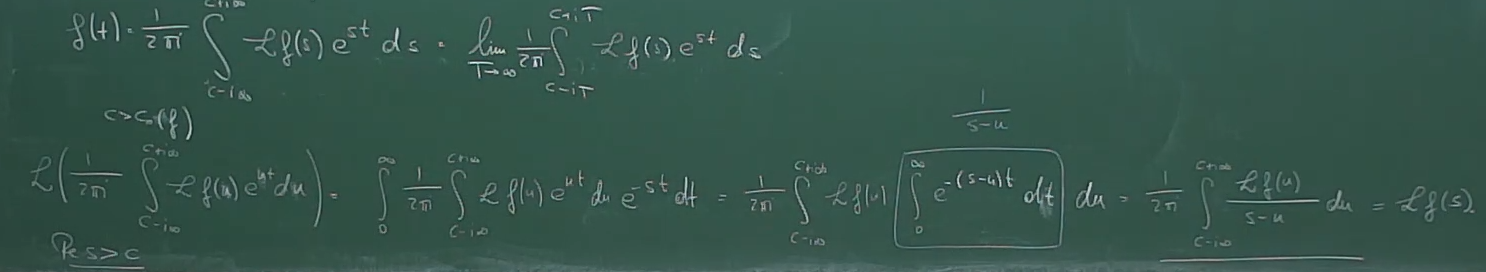 f(t) = 1/2πi ∫_{c-i∞}^{c+i∞} ℒf(s) e^{st} ds = lim_{T→∞} 1/2πi ∫_{c-iT}^{c+iT} ℒf(s) e^{st} ds
c > c_0(f)
1/(s-u)
ℒ(1/2πi ∫_{c-i∞}^{c+i∞} ℒf(u) e^{ut} du) = ∫_0^∞ 1/2πi ∫_{c-i∞}^{c+i∞} ℒf(u) e^{ut} du e^{-st} dt = 1/2πi ∫_{c-i∞}^{c+i∞} ℒf(u) ∫_0^∞ e^{-(s-u)t} dt du = 1/2πi ∫_{c-i∞}^{c+i∞} ℒf(u)/(s-u) du = ℒf(s).
Re s > c